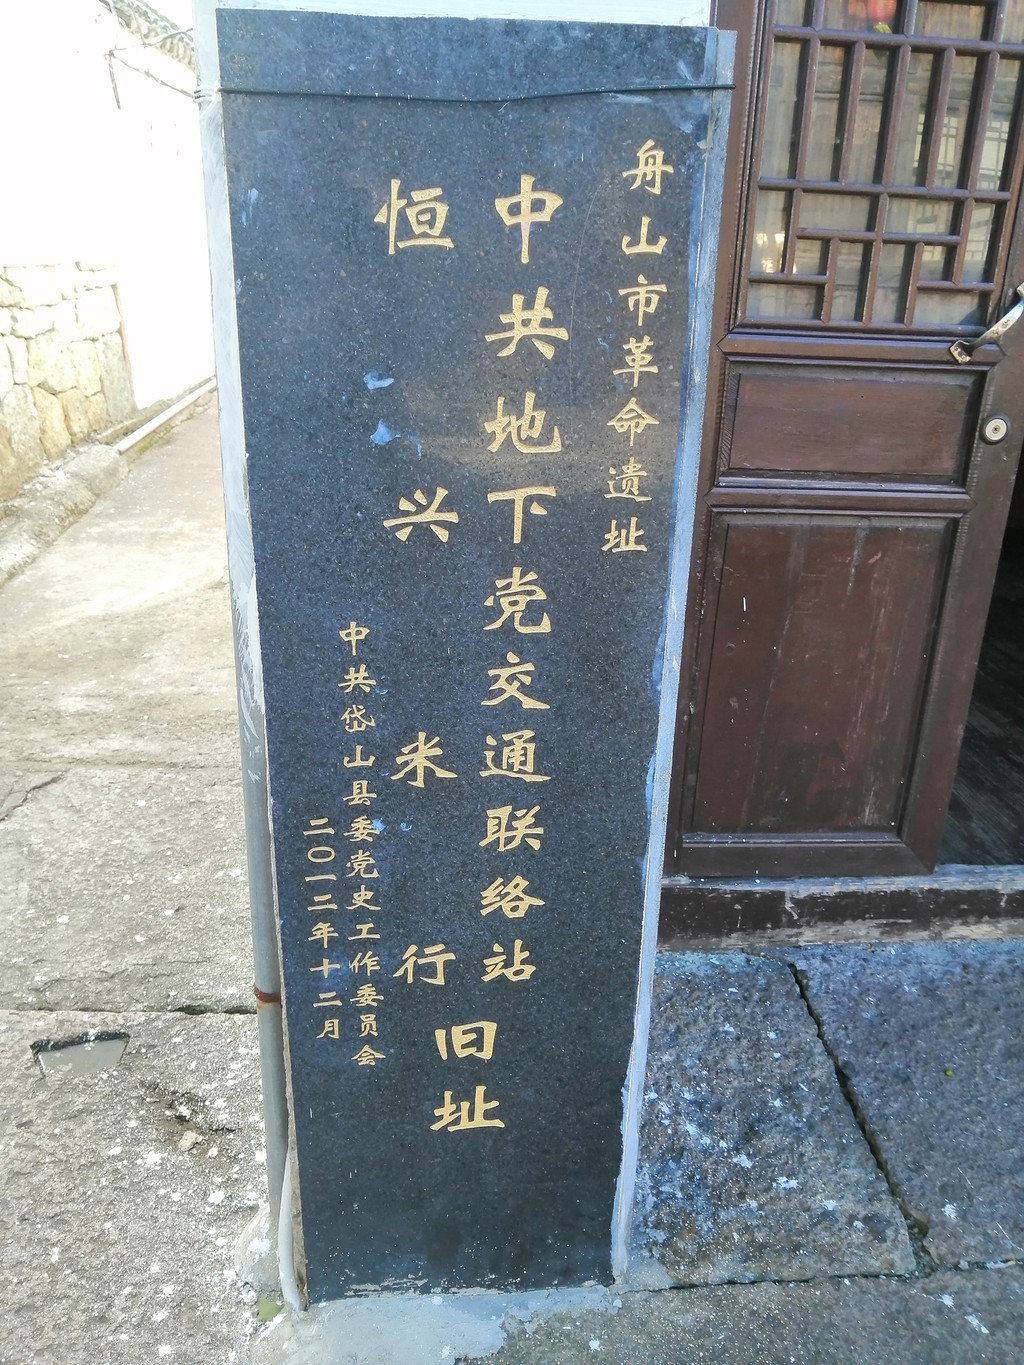 舟山市革命遗址
中共地下党交通联络站
恒兴米行
旧址
中共岱山县委党史工作委员会
二〇一二年十二月